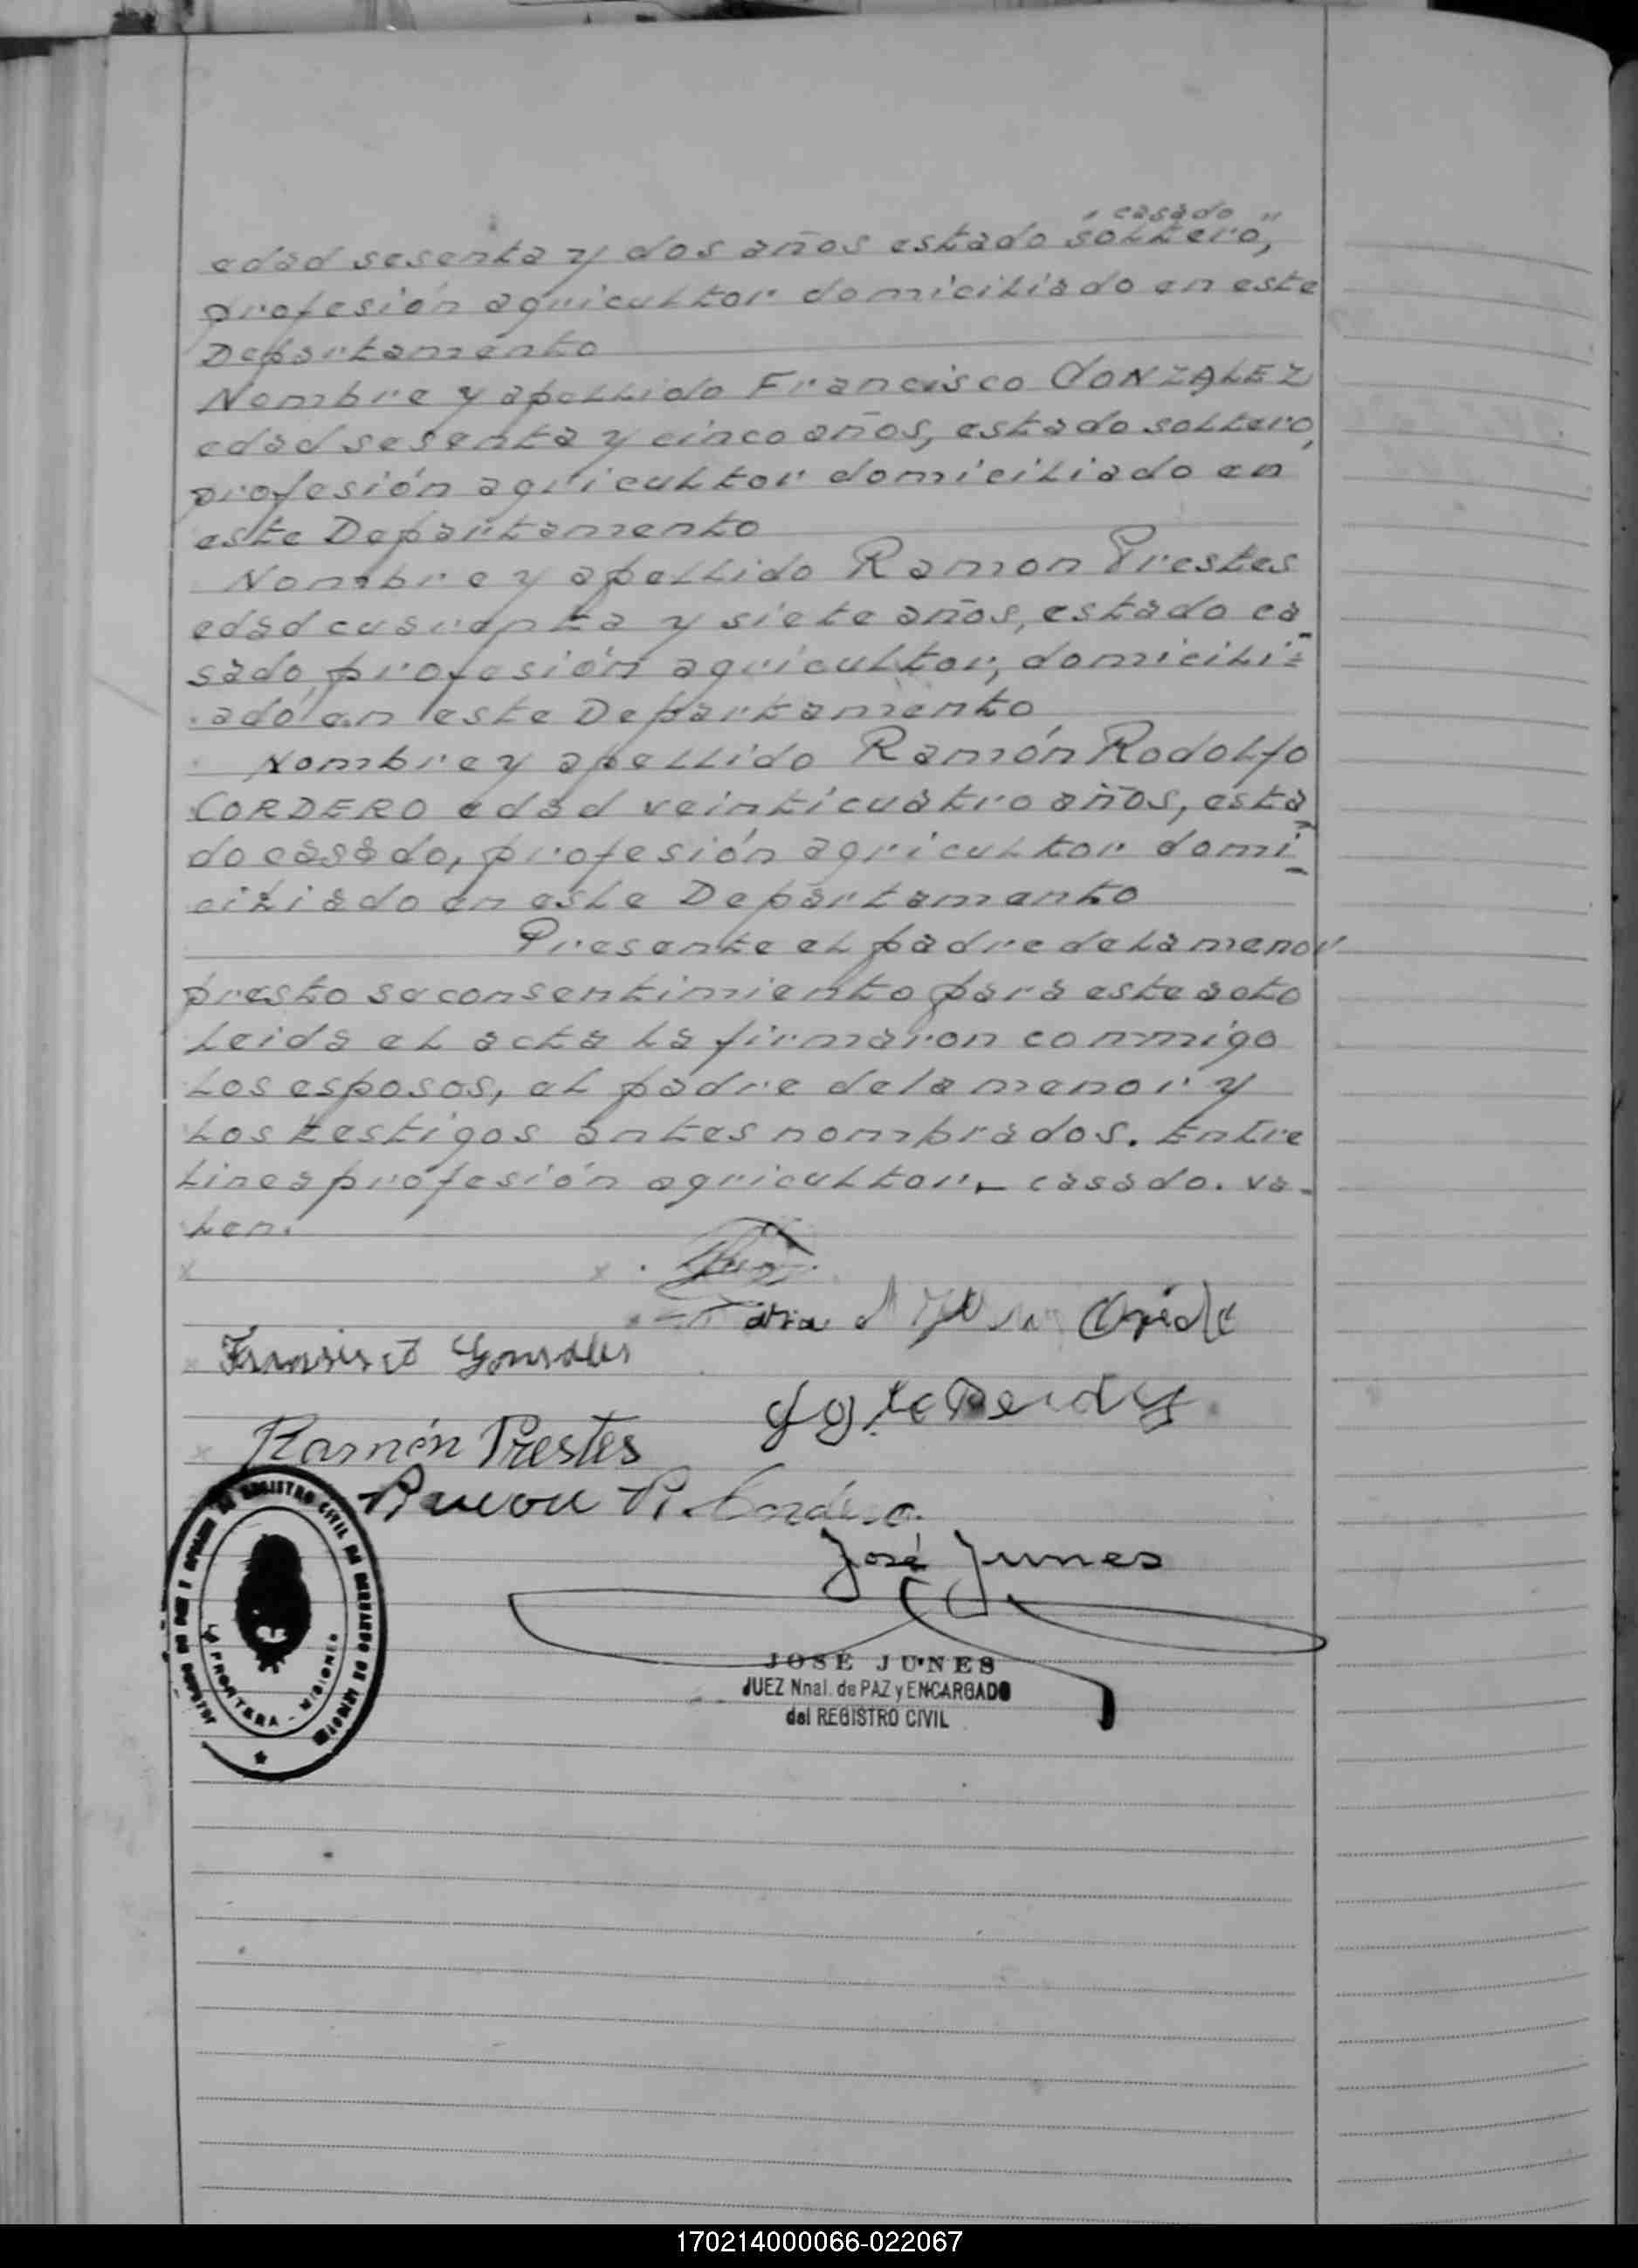 "casado"
edad sesenta y dos años estado soltero,
profesión agricultor domiciliado en este
Departamento
Nombre y apellido Francisco GONZALEZ
edad sesenta y cinco años, estado soltero,
profesión agricultor domiciliado en
este Departamento
Nombre y apellido Ramon Prestes
edad cuarenta y siete años, estado ca
sado, profesión agricultor, domicili=
ado en este Departamento
Nombre y apellido Ramón Rodolfo
CORDERO edad veinticuatro años, esta
do casado, profesión agricultor domi
ciliado en este Departamento
Presente el padre de la menor
presto su consentimiento para este acto
Leida el acta la firmaron conmigo
los esposos, el padre de la menor y
los testigos antes nombrados. Entre
linea profesión agricultor - casado. va-
len.
Ramón Prestes
Ramon R. Cordero
José Junes
JOSÉ JUNES
JUEZ Nnal. de PAZ y ENCARGADO
del REGISTRO CIVIL
REGISTRO CIVIL DE BERNARDO DE IRIGOYEN
FRONTERA - MISIONES
170214000066-022067